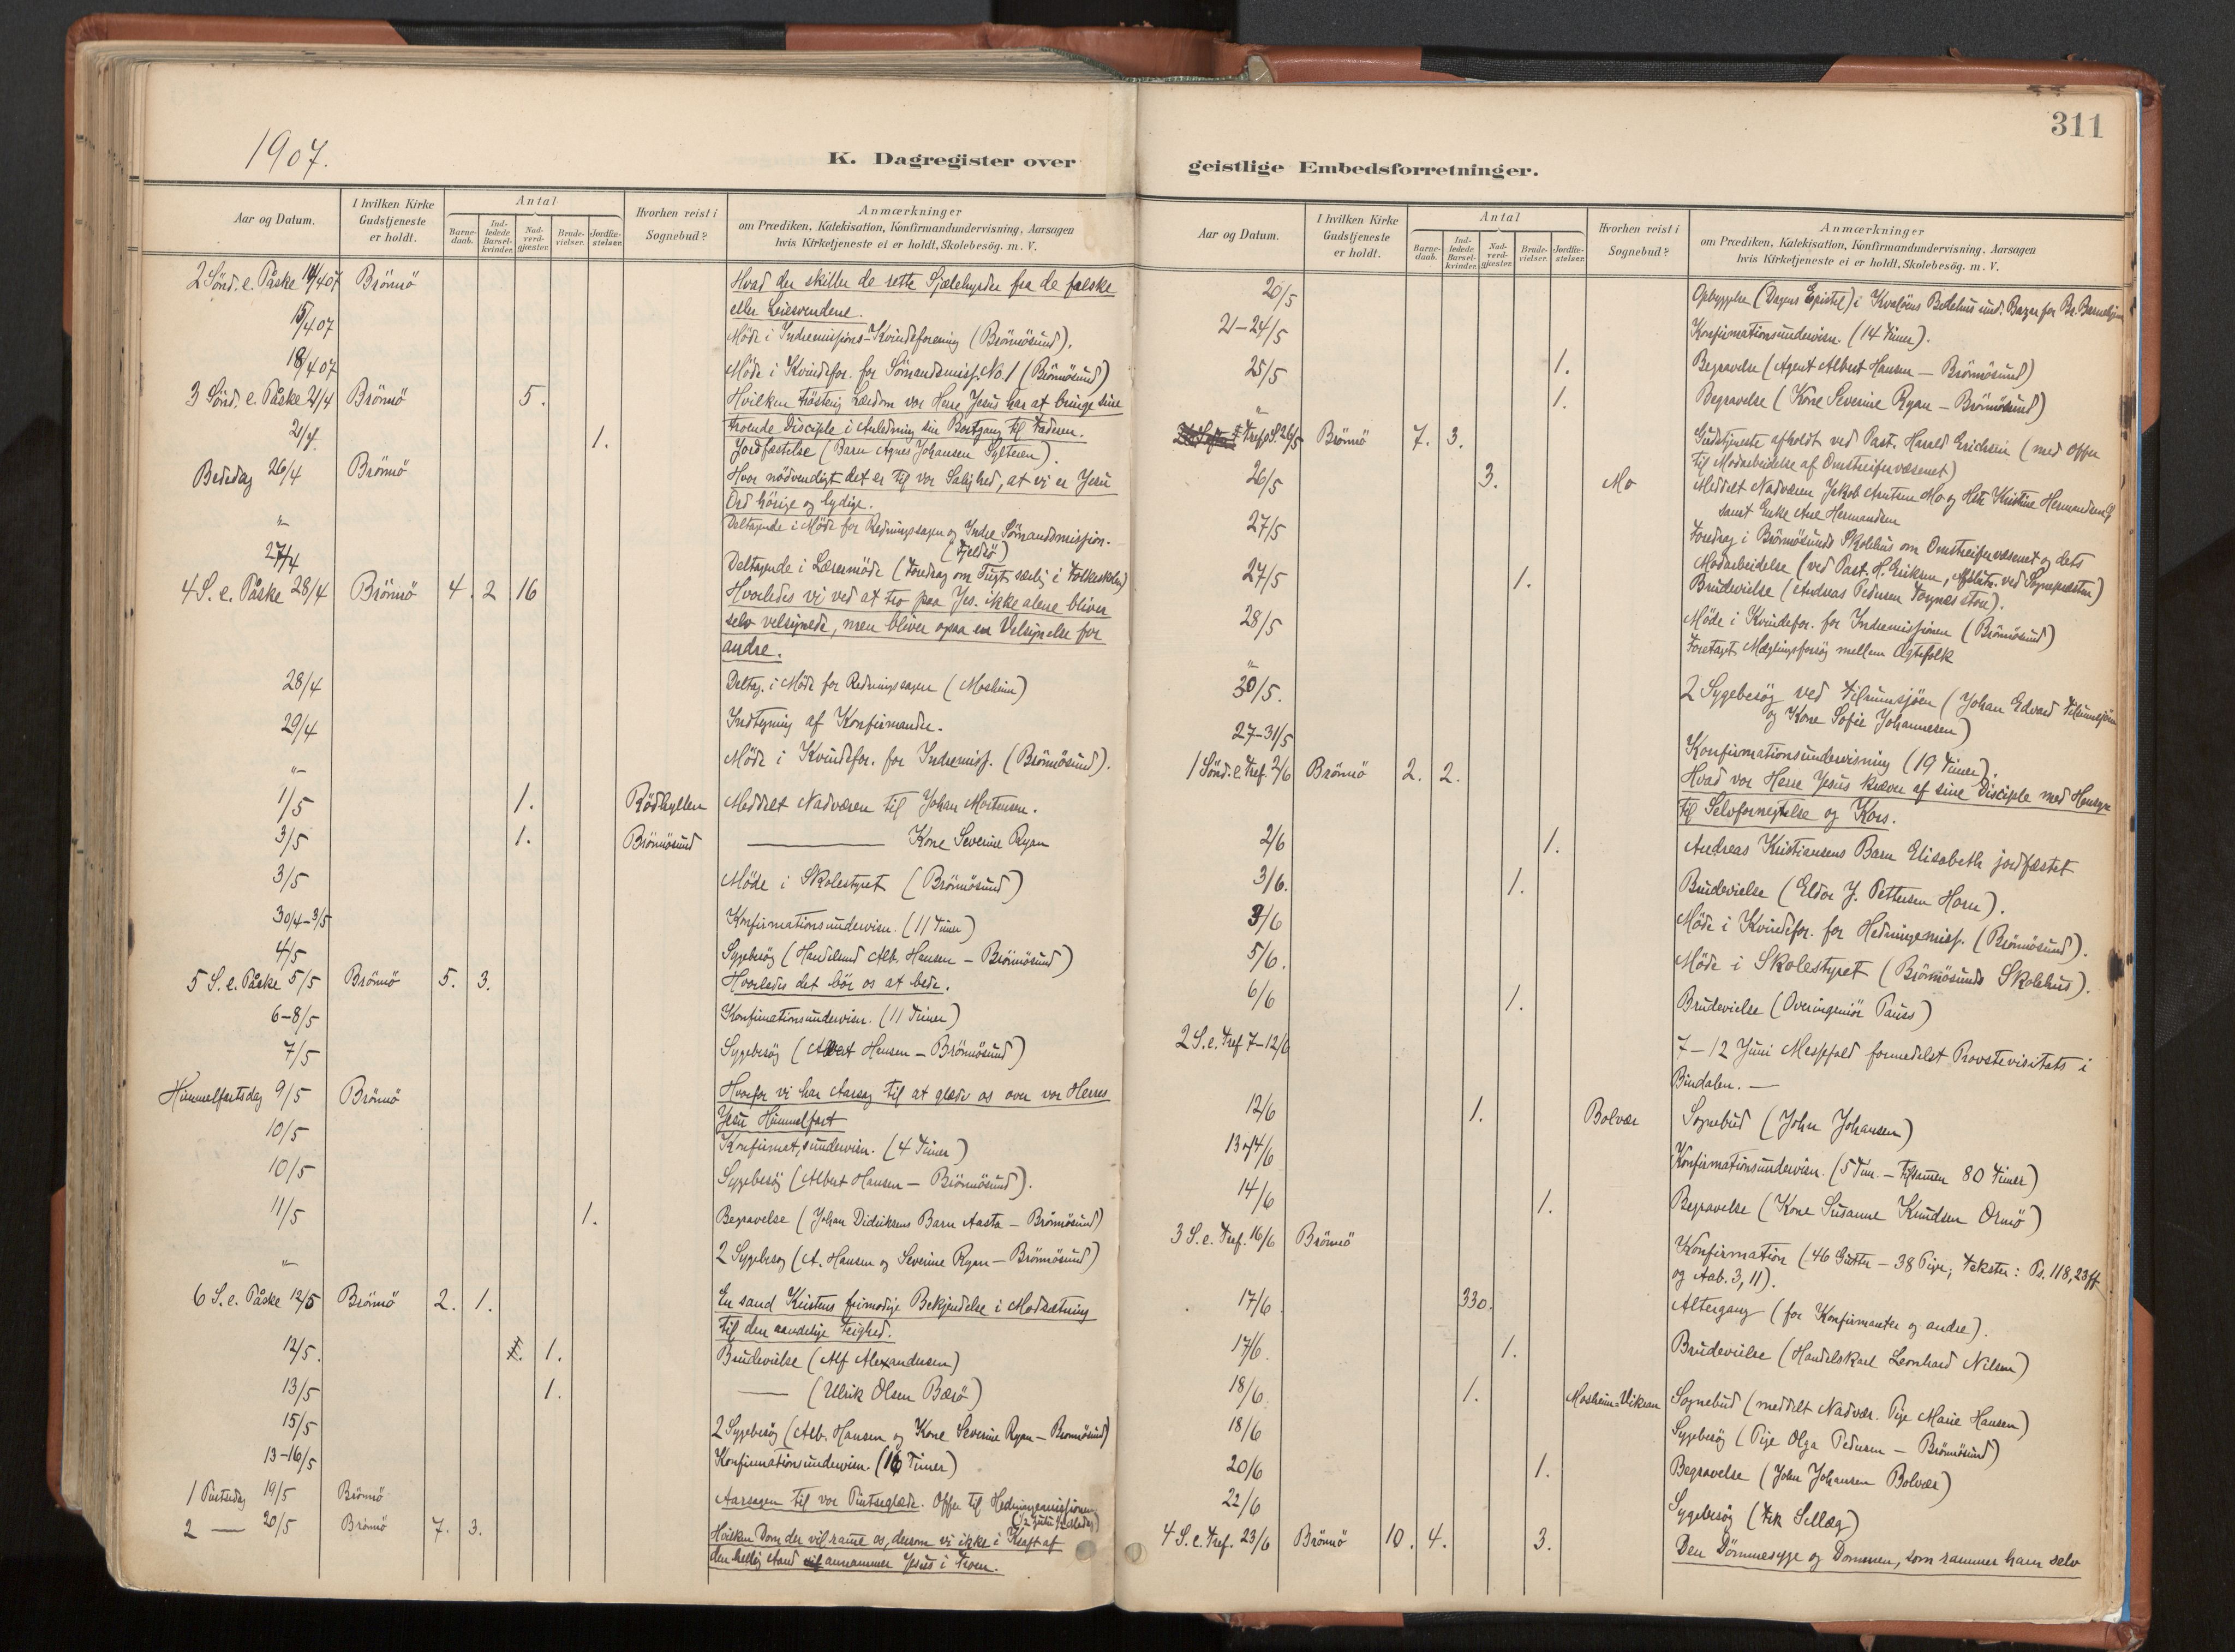 1907.
K. Dagregister over
Aar og Datum.
I hvilken Kirke
Gudstjeneste
er holdt.
Antal
Barne-
daab.
Ind-
ledede
Barsel-
kvinder.
Nad-
verd-
gjæster.
Brude-
vielser.
Jordfæ-
stelser.
Hvorhen reist i
Sognebud?
Anmærkninger
om Prædiken, Katekisation, Konfirmandundervisning, Aarsagen
hvis Kirketjeneste ei er holdt, Skolebesög. m. V.
2 Sönd. e. Påske 14/4 07 Brönnö Hvad der skiller de rette Sjælehyrder fra de falske
eller Leiesvendene.
15/4 07 Möde i Indremissions-Kvindeforening (Brönnösund).
18/4 07 Möde i Kvindefor. for Sömandsmiss. No. 1 (Brönnösund)
3 Sönd. e. Påske 21/4 Brönnö 5. Hvilken trösterig Lærdom vor Herre Jesus har at bringe sine
troende Disciple i Anledning sin Bortgang til Faderen.
21/4 1. Jordfæstelse (Barn Agnes Johansen Sylteren).
Bededag 26/4 Brönnö Hvor nödvendigt det er til vor Salighed, at vi er Jesu
Ord hörige og lydige.
" Deltagende i Möde for Redningssagen og Indre Sömandsmission.
(Tjeldö)
27/4 Deltagende i Lærermöde (Foredrag om Tugt særlig i Folkeskolen)
4 S. e. Påske 28/4 Brönnö 4. 2 16 Hvorledes vi ved at tro paa Jes. ikke alene bliver
selv velsignede, men bliver ogsaa en Velsignelse for
andre.
28/4 Deltag. i Möde for Redningssagen (Mosheim)
29/4 Indtegning af Konfirmander.
" Möde i Kvindefor. for Indremiss. (Brönnösund).
1/5 1. Rödhyllen Meddelt Nadveren til Johan Mortensen.
3/5 1. Brönnösund ——— Kone Severine Ryan
3/5 Möde i Skolestyret (Brönnösund)
30/4-3/5 Konfirmationsundervisn. (11 Timer)
4/5 Sygebesög (Handelsmd Alb. Hansen - Brönnösund)
5 S. e. Påske 5/5 Brönnö 5. 3. Hvorledes det bör os at bede.
6-8/5 Konfirmationsundervisn. (11 Timer)
7/5 Sygebesög (Albert Hansen - Brönnösund)
Himmelfartsdag 9/5 Brönnö Hvorfor vi har Aarsag til at glæde os over vor Herres
Jesu Himmelfart
10/5 Konfirmat,sundervisn. (4 Timer)
10/5 Sygebesög (Albert Hansen - Brönnösund).
11/5 1. Begravelse (Johan Didriksens Barn Aasta - Brönnösund)
" 2 Sygebesög (A. Hansen og Severine Ryan - Brönnösund)
6 S. e. Påske 12/5 Brönnö 2. 1. En sand Kristens frimodige Bekjendelse i Modsætning
til den aandelige Feighed.
12/5. 1. Brudevielse (Alf Alexandersen)
13/5 1. —— (Ulrik Olsen Bærö)
15/5 2 Sygebesög (Alb. Hansen og Kone Severine Ryan - Brönnösund)
13-16/5 Konfirmationsundervisn. (16 Timer)
1 Pintsedag 19/5 Brönnö Aarsagen til vor Pintseglæde. Offer til Hedningemissionen
2 — 20/5 Brönnö 7. 3. Hvilken Dom der vil ramme os, dersom vi ikke i Kraft af
den hellig Aand annammer Jesus i Troen.
311
geistlige Embedsforretninger.
Aar og Datum.
I hvilken Kirke
Gudstjeneste
er holdt.
Antal
Barne-
daab.
Ind-
ledede
Barsel-
kvinder.
Nad-
verd-
gjæster.
Brude-
vielser.
Jordfæ-
stelser.
Hvorhen reist i
Sognebud?
Anmærkninger
om Prædiken, Katekisation, Konfirmandundervisning, Aarsagen
hvis Kirketjeneste ei er holdt, Skolebesög. m. V.
20/5 Opbyggelse (Dagens Epistel) i Kvalöens Bedehus und. Bazar for Br. Barnehjem
21-24/5 Konfirmationsundervisn. (14 Timer).
25/5 1. Begravelse (Agent Albert Hansen - Brönnösund)
" 1. Begravelse (Kone Severine Ryan - Brönnösund)
Tref. S. 26/5 Brönnö 7. 3. Gudstjeneste afholdt ved Past. Harald Erichsen (med Offer
til Modarbeidelse af Omstreifervæsenet)
26/5 3. Mo Meddelt Nadveren Jakob Arntsen Mo og Kristine Hermandsen
samt Enke Ane Hermandsen
27/5 Foredrag i Brönnösunds Skolehus om Omstreifervæsenet og dets
Modarbeidelse (ved Past. H. Eriksen, ved Sognepræsten)
27/5 1. Brudevielse (Andreas Pedersen Torgnes store).
28/5 Möde i Kvindefor. for Indremissionen (Brönnösund)
" Foretaget Mæglingsforsög mellem Ægtefolk
30/5. 2 Sygebesög ved Tilrumsjöen (Johan Edvard Tilrumsjöen
og Kone Sofie Johannesen)
27-31/5 Konfirmationsundervisning (19 Timer).
1 Sönd. e. Tref. 2/6 Brönnö 2. 2. Hvad vor Herre Jesus kræver af sine Disciple med Hensyn
til Selvfornegtelse og Kors.
2/6 1. Andreas Kristiansens Barn Elisabeth jordfæstet
3/6. 1. Brudevielse (Eldor J. Pettersen Horn).
3/6 Möde i Kvindefor. for Hedningemiss. (Brönnösund).
5/6. Möde i Skolestyret (Brönnösunds Skolehus).
6/6 1. Brudevielse (Overingeniör Pauss)
2 S. e. Tref. 7-12/6 7-12 Juni Messefald formedelst Provstevisitats i
Bindalen. —
12/6 1. Bolvær Sognebud (John Johansen)
13 og 14/6 Konfirmationsundervisn. (5 Tim. - tilsammen 80 Timer)
14/6 1. Begravelse (Kone Susanne Knudsen Ormö)
3 S. e. Tref. 16/6 Brönnö Konfirmation (46 Gutter - 38 Piger; Tekster: Ps. 118, 23 ff
og Aab. 3, 11).
17/6. 330. Altergang (for Konfirmanter og andre).
17/6. 1. Brudevielse (Handelskarl Leonhard Nilsen)
18/6. 1. Mosheim-Vikran Sognebud (meddelt Nadver. Pige Marie Hansen)
18/6 Sygebesög (Pige Olga Pedersen - Brönnösund)
20/6 1. Begravelse (John Johansen Bolvær)
22/6 Sygebesög (Frk Sellæg)
4 S. e. Tref. 23/6 Brönnö 10. 4. 3. Den Dömmesyge og Dommen, som rammer ham selv